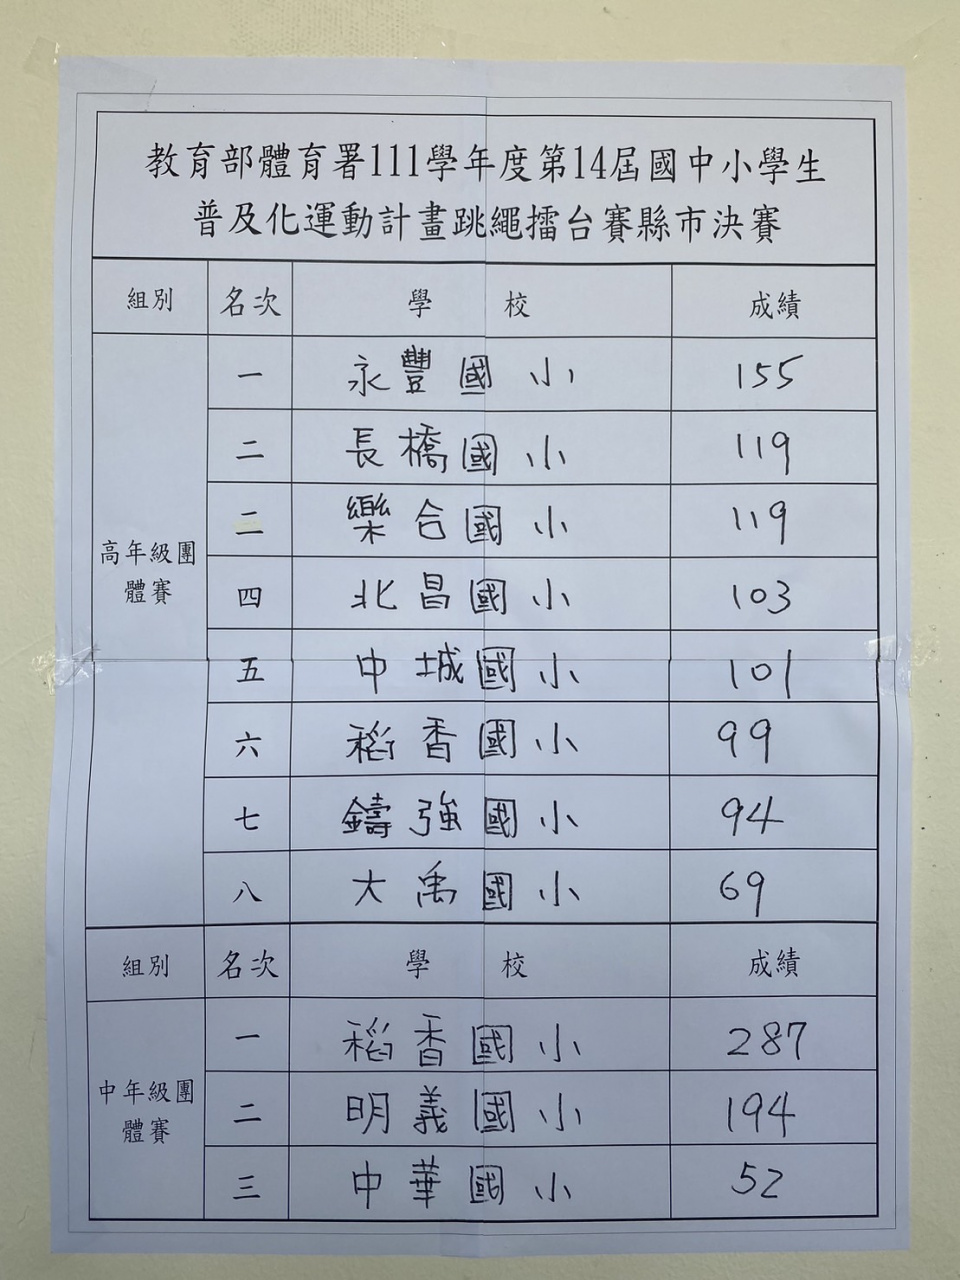 教育部體育署111學年度第14屆國中小學生
普及化運動計畫跳繩擂台賽縣市決賽
組別 名次 學校 成績
高年級團
體賽
一 永豐國小 155
二 長橋國小 119
二 樂合國小 119
四 北昌國小 103
五 中城國小 101
六 稻香國小 99
七 鑄強國小 94
八 大禹國小 69
組別 名次 學校 成績
中年級團
體賽
一 稻香國小 287
二 明義國小 194
三 中華國小 52